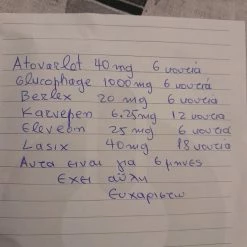 Atovarlot 40 mg 6 κουτιά
Glucophage 1000 mg 6 κουτιά
Bezlex 20 mg 6 κουτια
Karvepen 6,25 mg 12 κουτια
Eleveon 25 mg 6 κουτια
Lasix 40 mg 18 κουτια
Αυτα ειναι για 6 μηνες
Εχει αϋλη
Ευχαριστω